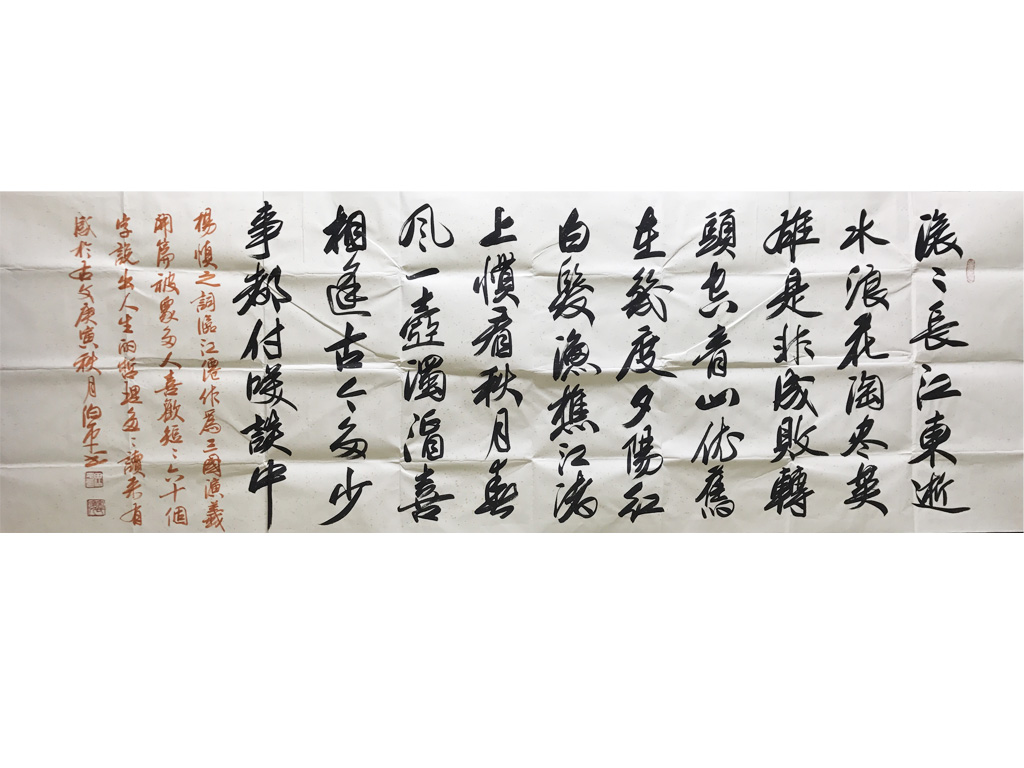 滚〻長江東逝
水浪花淘尽英
雄是非成敗轉
頭空青山依舊
在幾度夕陽红
白髮漁樵江渚
上慣看秋月春
风一壺濁酒喜
相逢古今多少
事都付笑談中
楊慎之詞臨江僊作爲三國演義
開篇被眾多人喜歡短〻六十個
字說出人生的哲理 〻讀來有
感於古文庚寅秋月